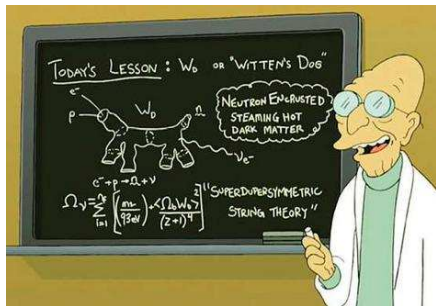 TODAY'S LESSON: W_D OR "WITTEN'S DOG"
e⁻
P
W_D
Ω
ν_e⁻
NEUTRON ENCRUSTED
STEAMING HOT
DARK MATTER
e⁻+P→Ω+ν
"SUPERDUPERSYMMETRIC
STRING THEORY"